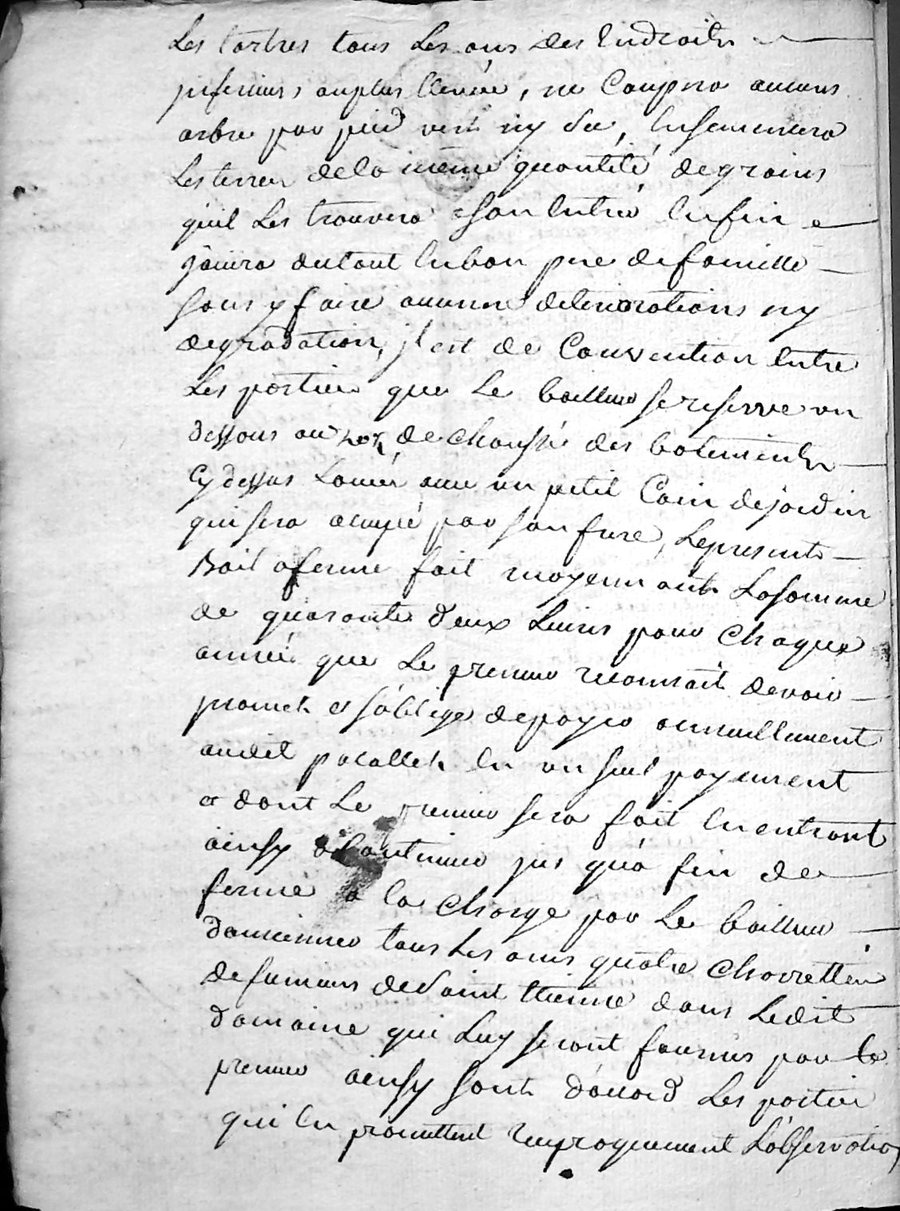 Les tertres tous Les ans des Endroits
inferieurs auplus Elevée, ne Coupera aucuns
arbre par pied vert ny sec, Ensemencera
Les terres dela même quantité degrains
quil Les trouvera ason Entrée Enfin
Jouira dutout Enbon pere defamille
sans y faire aucune deteriorations ny
degradation, jl est de Convention Entre
Les parties que Le bailleur sereserve un
dessous au rez de chaussée des batiments
Cydessus Loués avec un petit Coin dejardin
qui sera occupé par son frere, Lepresent
Bail aferme fait moyennant Lasomme
de quarante deux Livres pour chaque
année que Le preneur reconnait devoir
promet et s'oblige depayer annuellement
audit pacallet En un seul payement
et dont Le premier sera fait En entrant
ainsy a Continuer jus qu'a fin de
ferme a la charge par Le bailleur
d'amenner tous Les ans quatre charrettées
defumiers deSaint Etienne dans Ledit
domaine qui Luy seront fournis par le
preneur ainsy sont d'accord Les parties
qui En promettent reciproquement L'observation